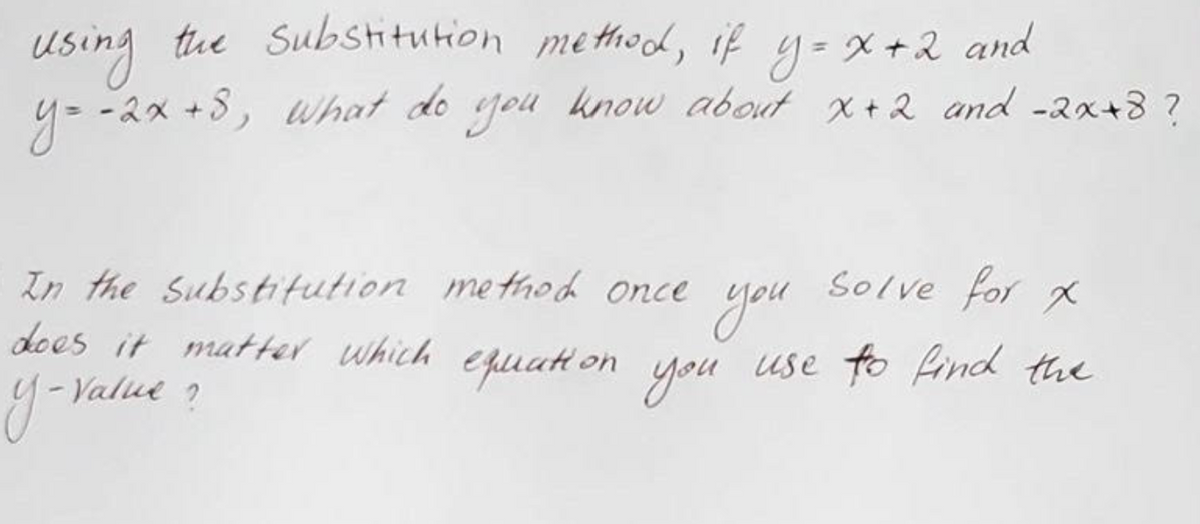 using the substitution method, if y = x + 2 and
y = -2x + 8, what do you know about x + 2 and -2x+8 ?
In the substitution method once you solve for x
does it matter which equation you use to find the
y-value ?